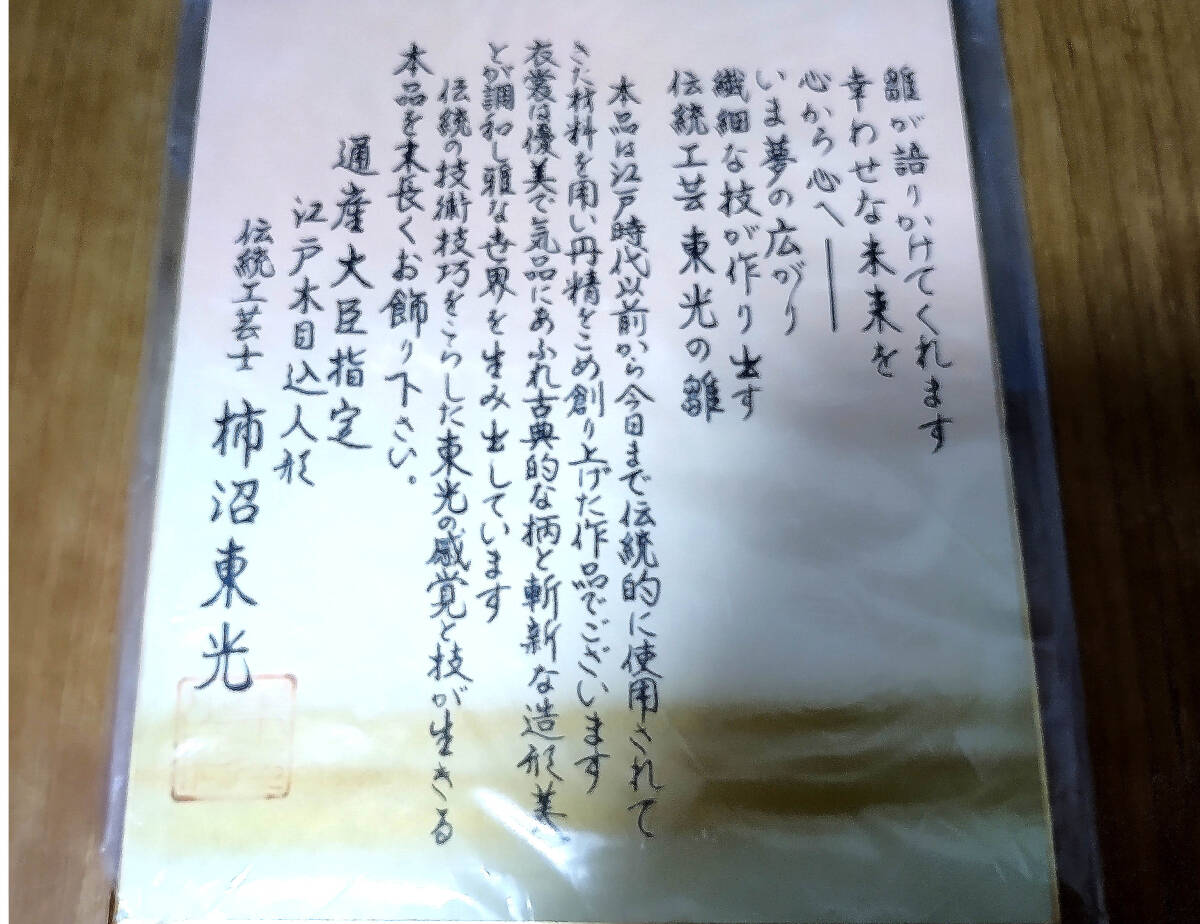 雛が語りかけてくれます
幸わせな未来を
心から心へ――
いま夢の広がり
繊細な技が作り出す
伝統工芸東光の雛
本品は江戸時代以前から今日まで伝統的に使用されて
きた材料を用い丹精をこめ創り上げた作品でございます
衣裳は優美で気品にあふれ古典的な柄と斬新な造形美
とが調和し雅な世界を生み出しています
伝統の技術技巧をこらした東光の感覚と技が生きる
本品を末長くお飾り下さい。
通産大臣指定
江戸木目込人形
伝統工芸士 柿沼東光